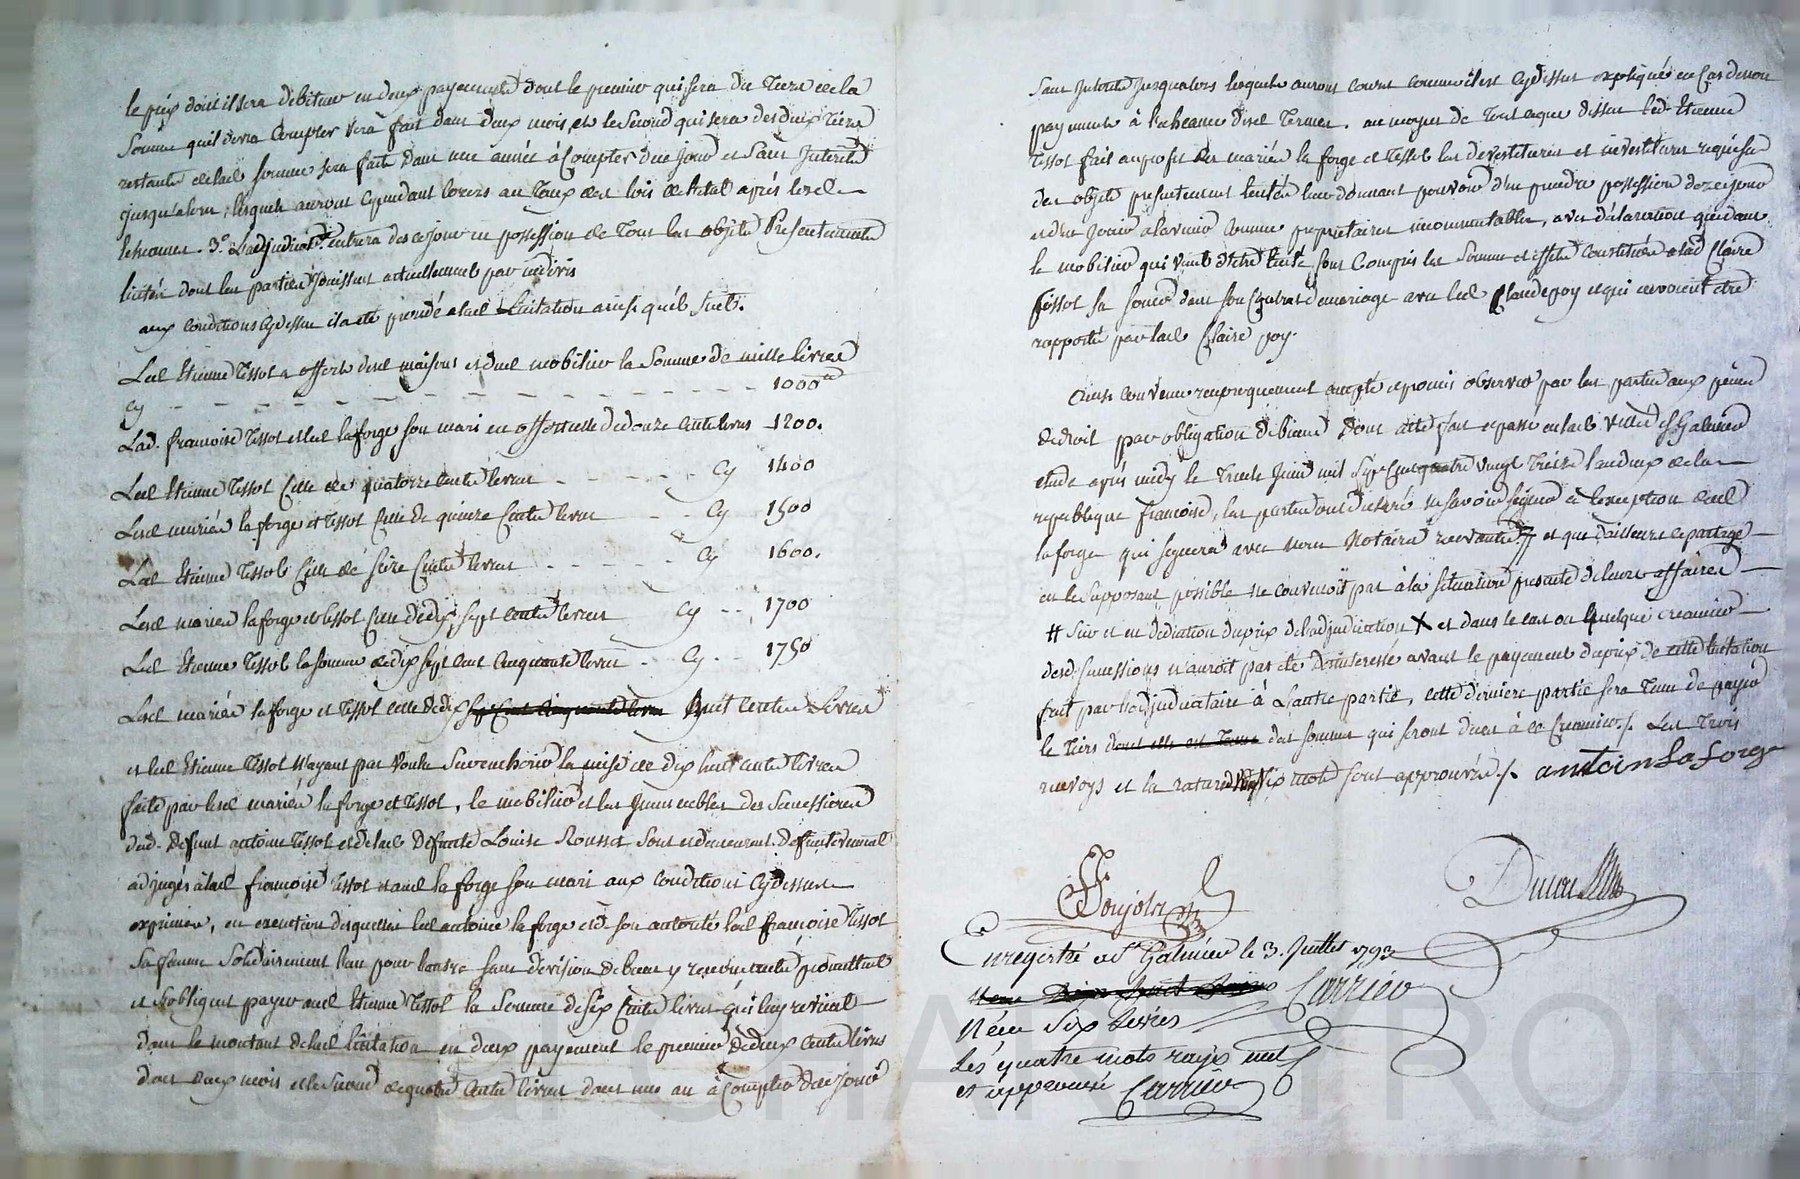 le prix dont il sera débiteur en deux payements dont le premier qui sera du tiers de la
somme qu'il devra compter sera fait dans deux mois, et le second qui sera des deux tiers
restants de lad. somme sera fait dans une année à compter de ce jour et sans interets
jusqu'alors, lesquels auront cependant cours au taux des lois de l'etat après lesd.
echeances. 3.° L'adjudicat.re entrera des ce jour en possession de tous les objets presentements
licités dont les parties jouissent actuellement par indivis
aux conditions cydessus il a été procédé a lad. licitation ainsi qu'il suit.
Led. Etienne Tessot a offert desd. maisons et dud. mobilier la somme de mille livres
cy - - - - - - - - - - 1000
Lad. françoise Tessot et led. laforge son mari en offrent celle de douze cents livres 1200.
Led. Etienne Tessot celle de quatorze cents livres - - - - cy 1400
Lesd. mariés laforge et Tessot celle de quinze cents livres - - cy 1500
Led. Etienne Tessot celle de seize cents livres - - - - cy 1600.
Lesd. mariés laforge et Tessot celle de dix sept cents livres cy - - 1700
Led. Etienne Tessot la somme de dix sept cent cinquante livres - cy - 1750
Lesd. mariés laforge et Tessot celle de dix sept cent cinquante livres huit cents livres
et led. Etienne Tessot n'ayant pas voulu surencherir la mise de dix huit cents livres
faite par lesd. mariés laforge et Tessot, le mobilier et les immeubles des successions
dud. defunt antoine Tessot et de lad. defunte Louise Rousset sont et demeurent definitivement
adjugés à lad. françoise Tessot et aud. laforge son mari aux conditions cydessus
exprimées, en execution desquelles led. antoine laforge et de son autorité lad. françoise Tessot
sa femme solidairement l'un pour l'autre sans division de biens y renonçants promettent
et s'obligent payer aud. Etienne Tessot la somme de six cents livres qui luy revient
dans le montant de lad. licitation en deux payements le premier de deux cents livres
dans deux mois et le second de quatre cents livres dans un an à compter de ce jour
sans interets jusqu'alors lesquels auront cours comme il est cydessus expliqué en cas de non
payement à l'echeance desd. termes. au moyen de tout ce que dessus led. Etienne
Tessot fait au profit des mariés laforge et Tessot les devestitures et investitures requises
des objets presentement licités leur donnant pouvoir d'en prendre possession dez ce jour
et d'en jouir a l'avenir comme proprietaires incommutables, avec déclaration que dans
le mobilier qui vient d'etre licité sont compris les sommes et effets constitués a lad. Claire
Tessot sa soeur dans son contrat de mariage avec led. Claude poy et qui avoient été
rapportés par lad. Claire poy.
Ainsi convenu reciproquement accepté et promis observer par les parties aux peines
de droit par obligation de biens Dont acte fait et passé en lad. ville de S.t Galmier
etude après midy le trente juin mil sept cent quatre vingt treize l'an deux de la
republique françoise, les parties ont declaré ne savoir signer à l'exception dud.
laforge qui signera avec nous Notaires recevants # et que d'ailleurs le partage
en le supposant possible ne convenoit pas à la situation presente de leurs affaires
# sur et en deduction du prix de l'adjudication X et dans le cas ou quelque creancier
desd. successions n'auroit pas été desinteressé avant le payement du prix de cette licitation
fait par l'adjudicataire à l'autre partie, cette derniere partie sera tenue de payer
le tiers dont elle est tenue des sommes qui seront dues à ce creancier ./. Les trois
renvoys et la rature des six mots sont approuvés ./. antoin Laforge
Enregistré a S.t Galmier le 3. Juillet 1793
Carrier
Reçu six livres
Les quatre mots rayés nuls
et approuvé Carrier